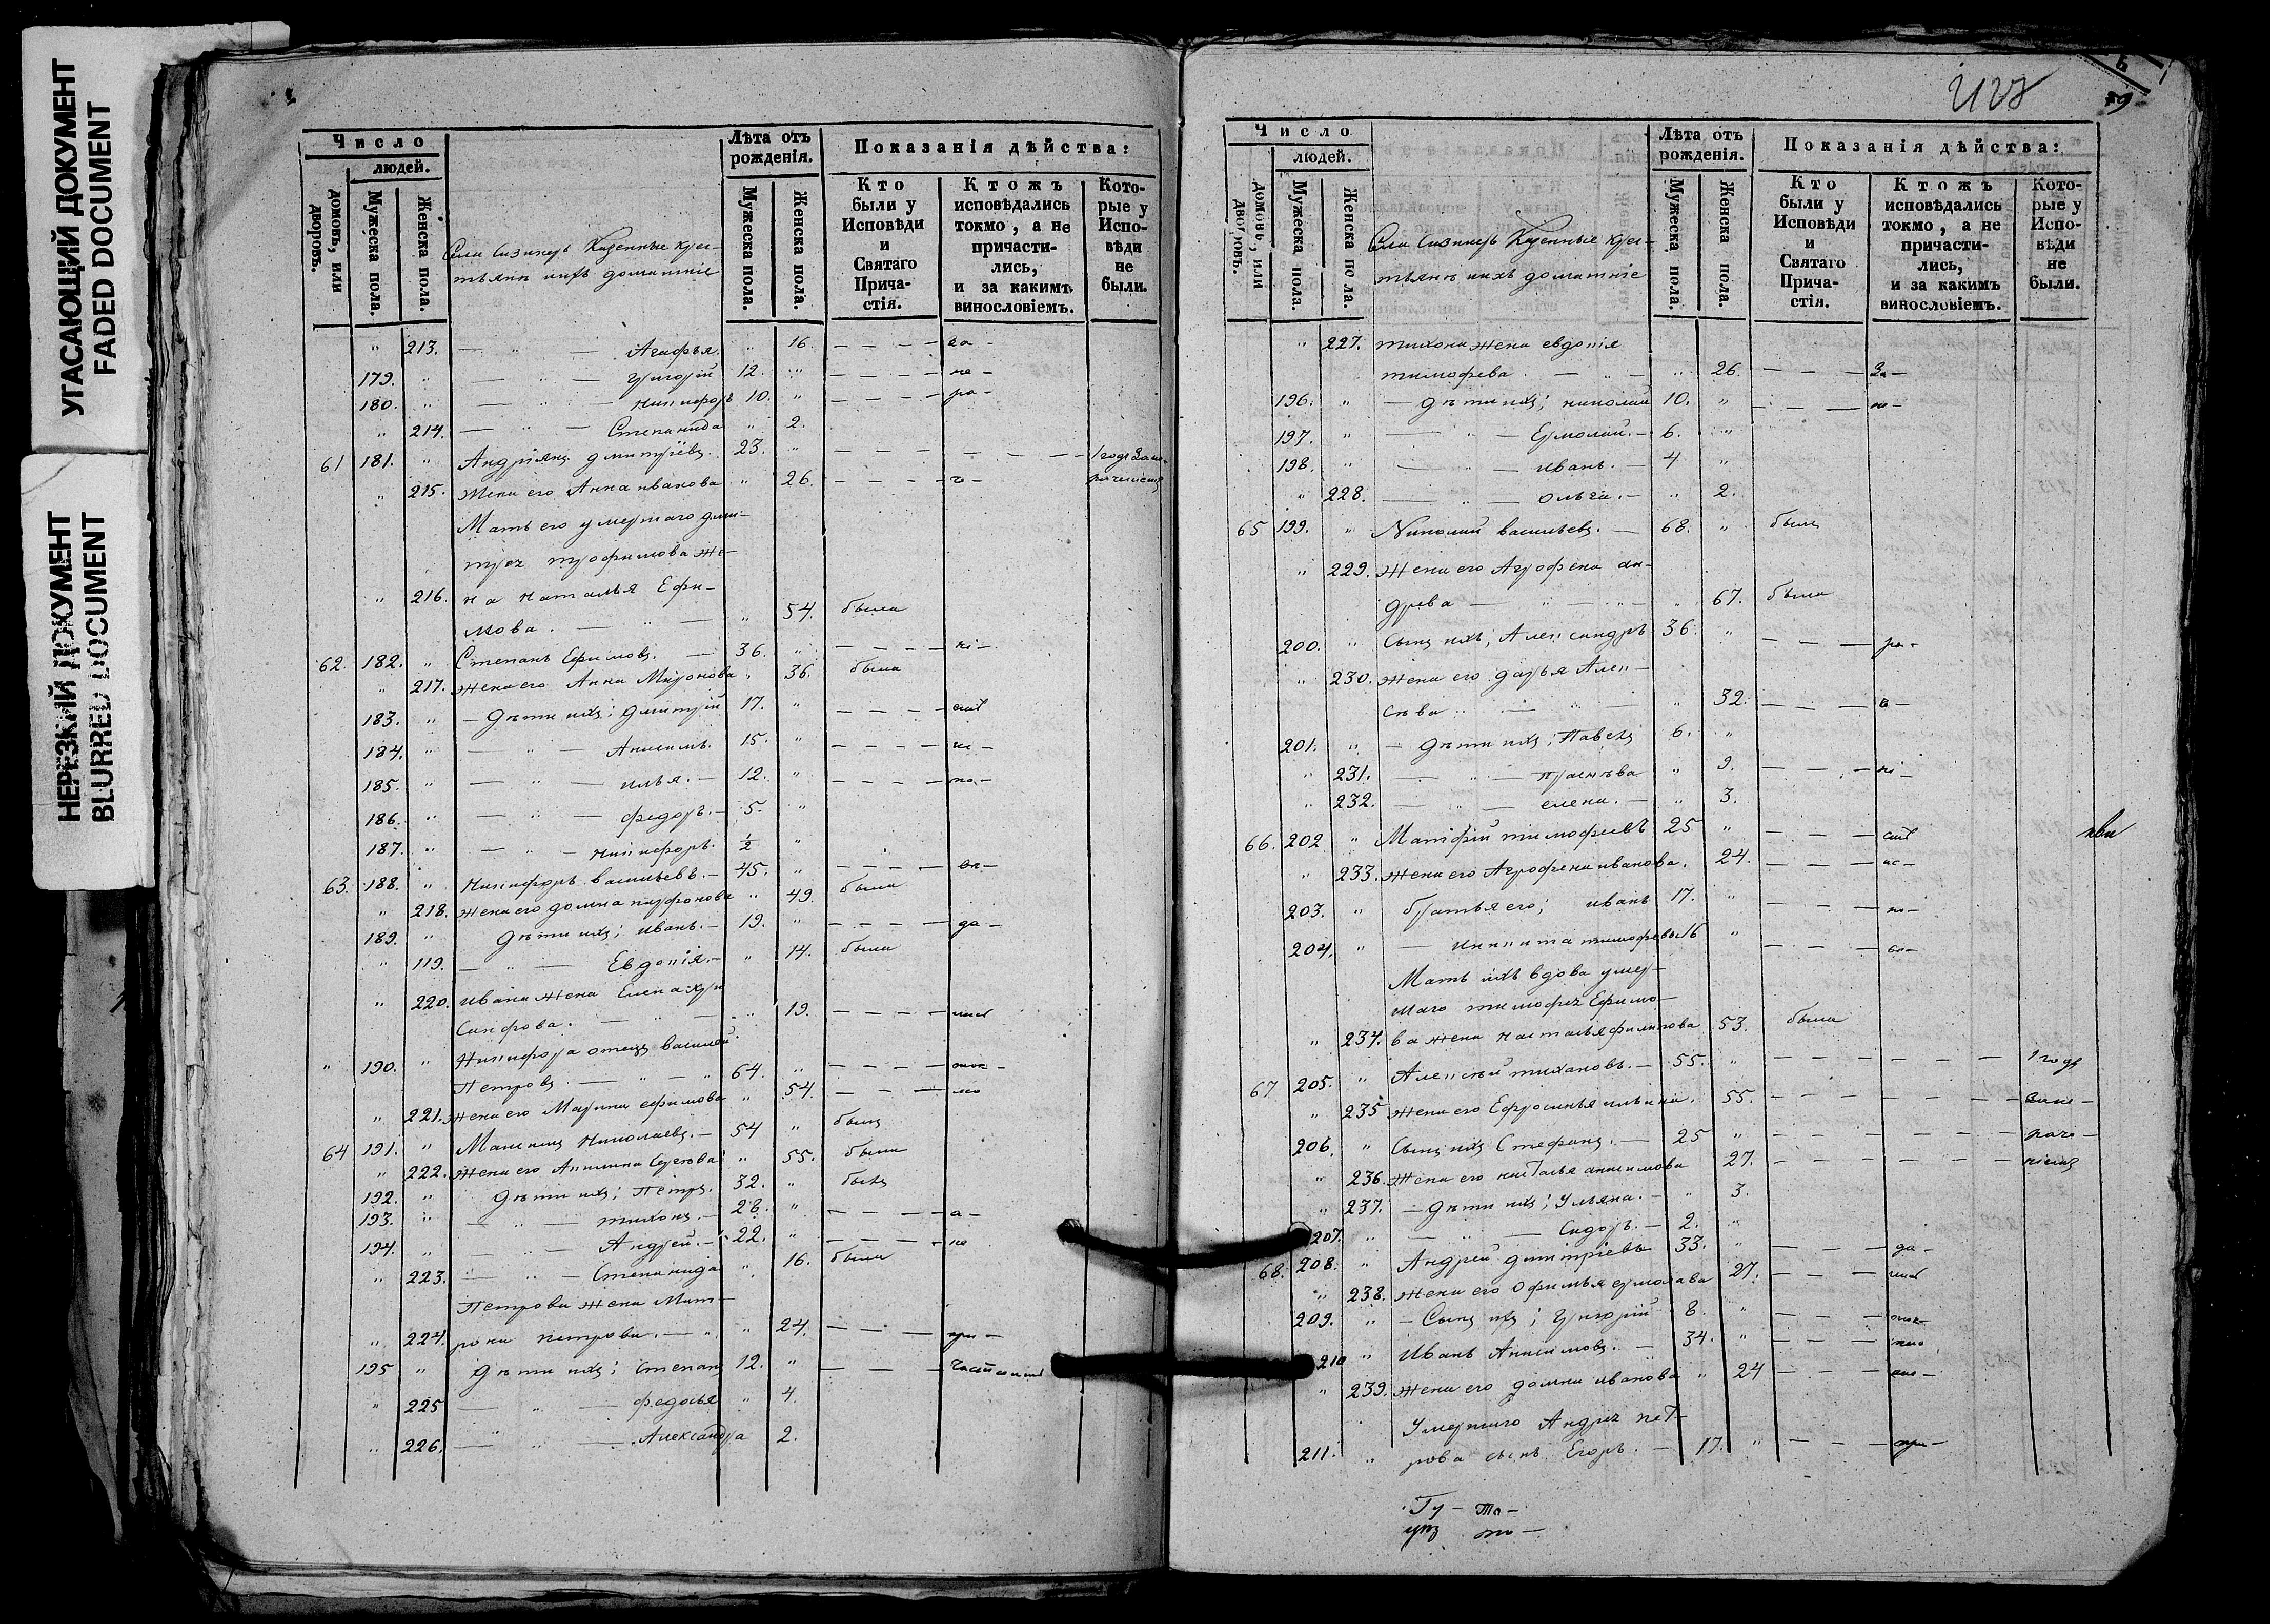 УГАСАЮЩИЙ ДОКУМЕНТ
FADED DOCUMENT
НЕРЕЗКИЙ ДОКУМЕНТ
BLURRED DOCUMENT
Число
людей.
домовъ, или дворовъ.
Мужеска пола.
Женска пола.
Села Сизнеръ Казенные крес-
тьяне ихъ домашніе
Лѣта отъ рожденія.
Мужеска пола.
Женска пола.
Показанія дѣйства:
Кто были у Исповѣди и Святаго Прича- стія.
Ктожъ исповѣдались токмо, а не причасти- лись, и за какимъ винословіемъ.
Кото- рые у Испо- вѣди не были.
" 213. — " — Агафья " 16. — — — — за —
179. " — " — Григорій 12. " — — — — не —
180. " — " — Никифоръ 10. " — — — — ра —
" 214. — " — Степанида " 2.
61 181. " Андріянъ Дмитріевъ. 23. " — — — — — — — 1 годъ за не-
" 215. Жена его Анна Иванова " 26. — — — —
Мать его умершаго Дми-
трея Трофимова же-
" 216. на Наталья Ефи-
мова. — " — " 54. была
62. 182. " Степанъ Ефимовъ. — 36. " — — — — ні —
" 217. Жена его Анна Миронова " 36. была
183. " — Дѣти ихъ; Дмитрій 17. " — — — — емъ
184. " — " — Анисимъ. 15. " — — — — не —
185. " — " — Илья. — 12. " — — — — по —
186. " — " — Федоръ. — 5. "
187. " — " — Никифоръ. ½ "
63. 188. " Никифоръ Васильевъ. — 45. " — — — —
" 218. Жена его Домна Парфонова " 49. была
189. " Дѣти ихъ; Иванъ. — 19. " — — — — да —
" 119. — " — Евдокія. — " 14. была
" 220. Ивана жена Елена Хри
санфова. — " — " 19. — — — —
" 190. " Никифора отецъ Василей
Петровъ. — " — " 64. " — — — —
" 221. Жена его Марина Ефимова " 54. — — — —
64 191. " Максимъ Николаевъ. — 54 " былъ
" 222. Жена его Акилина Сергѣева " 55. была
192. " Дѣти ихъ; Петръ. 32. " былъ
193. " — " — Тихонъ. — 28. " — — — — а —
194. " — " — Андрей. — 22. " — — — — не
" 223. — " — Степанида " 16. была
Петрова жена Мат-
" 224. рона Петрова. — " " 24. — — — при —
195 " Дѣти ихъ; Степанъ 12. " — — —
" 225 — " — Федосья " 4.
" 226. — " — Александра 2.
Число
людей.
домовъ, или дворовъ.
Мужеска пола.
Женска пола.
Села Сизнеръ Казенные крес-
тьяне ихъ домашніе
Лѣта отъ рожденія.
Мужеска пола.
Женска пола.
Показанія дѣйства:
Кто были у Исповѣди и Святаго Прича- стія.
Ктожъ исповѣдались токмо, а не причасти- лись, и за какимъ винословіемъ.
Кото- рые у Испо- вѣди не были.
" 227. Тихона жена Евдокія
Тимофева. — " — " 26. — — — За —
196. " — Дѣти ихъ; Николай 10. " — — — не —
197. " — " — Ермолай. — 6. "
198. " — " — Иванъ. — 4 "
" 228. — " — Ольга. — " 2.
65 199. " Николай Васильевъ. — 68. " былъ
" 229. Жена его Агрофена Ан-
древа — " — " 67. была
200. " Сынъ ихъ; Александръ 36. " — — — ра —
" 230. Жена его Дарья Алек-
сѣва — " — " 32. — — —
201. " — Дѣти ихъ; Павелъ 6. "
" 231. — " — Прасковья " 9. — — — ні —
" 232. — " — Елена. — " 3.
66. 202 " Матфій Тимофеевъ 25 " — — — емъ
" 233. Жена его Агрофена Иванова. 24. — — — не —
203. " Братья его; Иванъ 17. " — — —
204. " — Никита Тимофевы 16 " — — —
Мать ихъ вдова умер-
шаго Тимофея Ефимо-
" 234. ва жена Наталья Филипова 53. была
67. 205. " Алексѣй Тихановъ. — 55. " — — — — — — 1 годъ
" 235 Жена его Ефросинья Ильина. 55. — — — — — — за не —
206. " Сынъ ихъ Стефанъ. — 25 " — — — — — — раче —
" 236. Жена его Наталья Анисимова 27. — — — — — — ніемъ
" 237. — Дѣти ихъ; Ульяна. — " 3.
207. " — " — Сидоръ. — 2. "
68. 208. " Андрей Дмитріевъ 33. " — — — да —
" 238. Жена его Офимья Ермолава 27. — — —
209. " — Сынъ ихъ; Григорій 8. " — — —
210 " Иванъ Анисимовъ. — 34. " — — —
" 239. Жена его Домна Иванова " 24 — — —
Умершаго Андрея Пет-
211. " рова сынъ Егоръ. — 17. " — — — при —